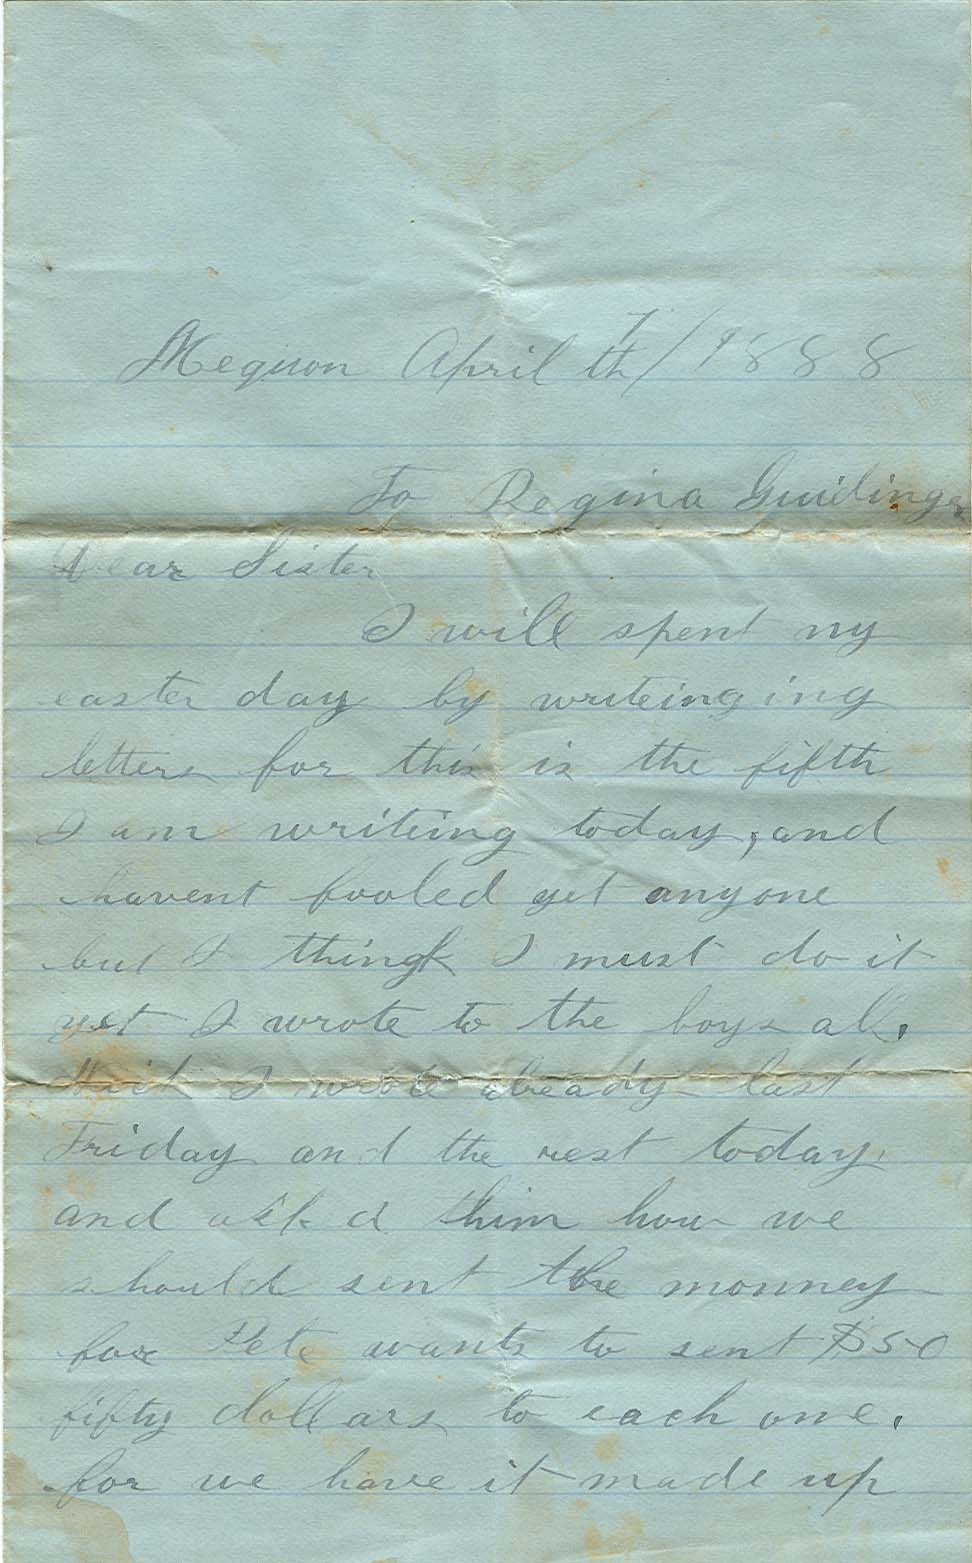 Mequon April 1th / 1888
To Regina
Dear Sister
I will spent my
easter day by writeinging
letters for this is the fifth
I am writeing today, and
havent fooled yet anyone
but I thingk I must do it
yet I wrote to the boys al.
I wrote already last
Friday and the rest today.
and askd thim how we
should sent the monney
for Pete wants to sent $50
fifty dollars to each one.
for we have it made up